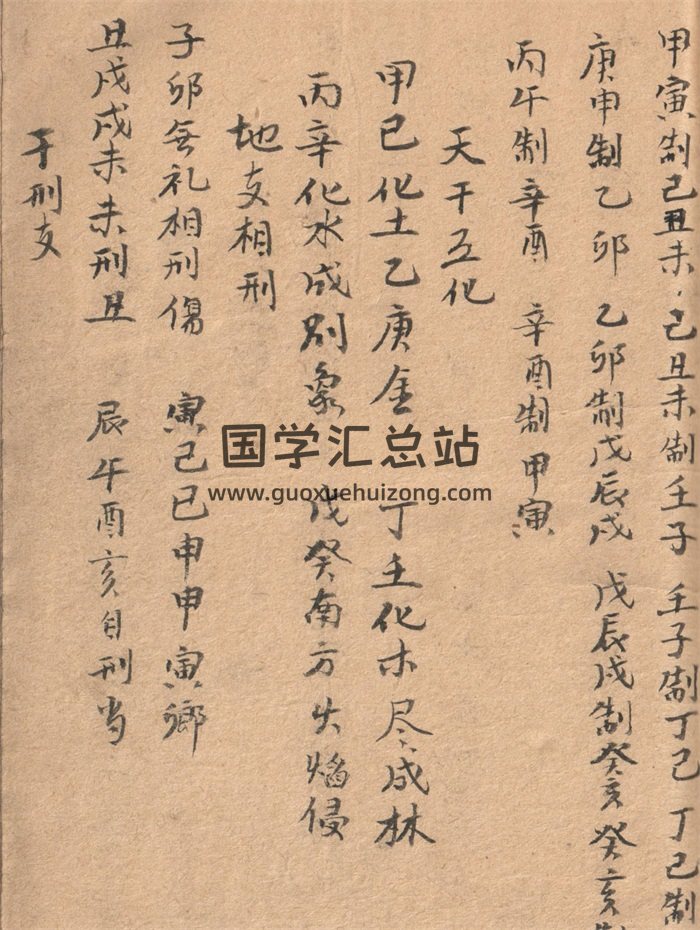 甲寅制己丑未、己丑未制壬子 壬子制丁巳 丁巳制
庚申制乙卯 乙卯制戊辰戌 戊辰戌制癸亥 癸亥制
丙午制辛酉 辛酉制甲寅
天干互化
甲己化土乙庚金 丁壬化木尽成林
丙辛化水成别象 戊癸南方火焰侵
地支相刑
子卯无礼相刑傷 寅巳巳申申寅鄉
丑戌戌未未刑丑 辰午酉亥自刑当
干刑支
国学汇总站
www.guoxuehuizong.com